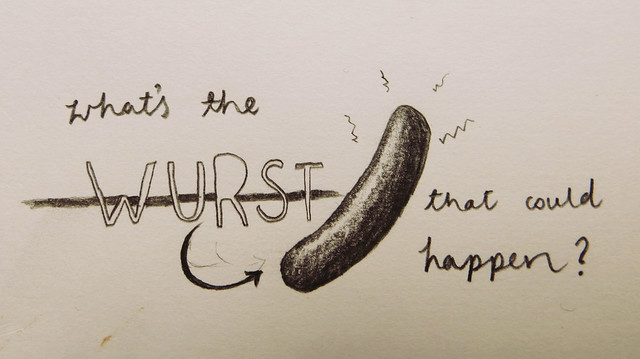 what's the
WURST
that could
happen?